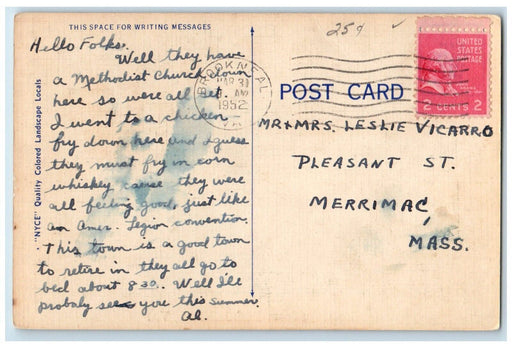 THIS SPACE FOR WRITING MESSAGES
Hello Folks,
Well they have
a Methodist Church down
here so were all set.
I went to a chicken
fry down here and I guess
they must fry in corn
whiskey cause they were
all feeling good, just like
an Amer. Legion convention.
This town is a good town
to retire in they all go to
bed about 8 30. Well I'll
probaly see you this summer.
Al.
"NYCE" Quality Colored Landscape Locals
25¢
BROOKNEAL
MAR 31
AM
1952
VA
UNITED
STATES
POSTAGE
2 CENTS 2
POST CARD
MR & MRS. LESLIE VICARRO
PLEASANT ST.
MERRIMAC,
MASS.